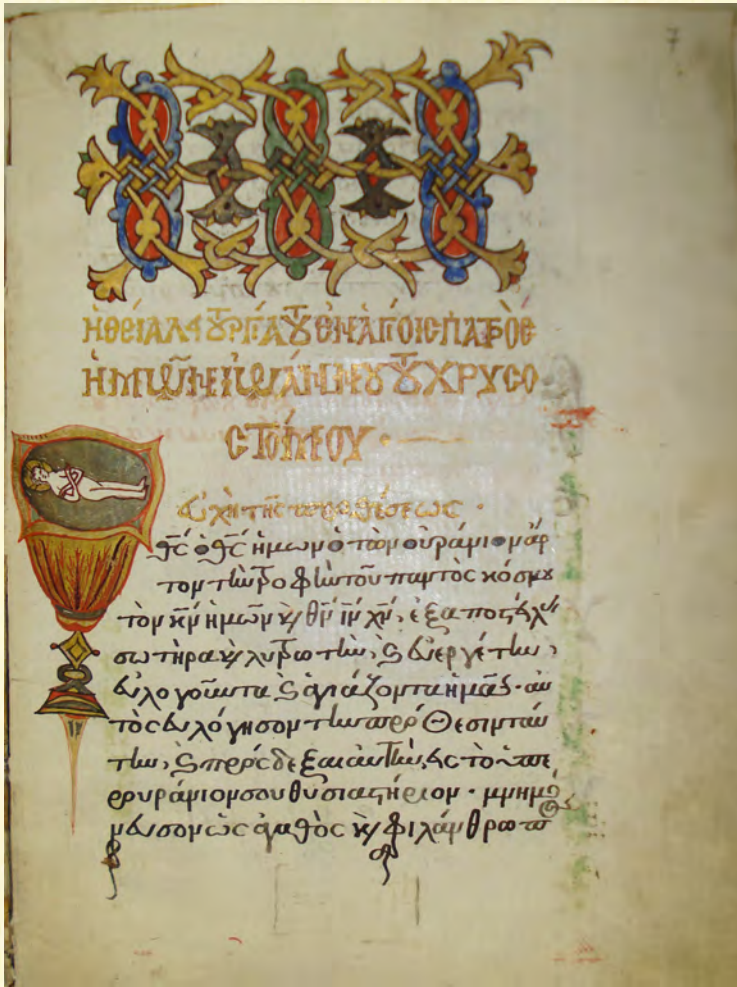 7
ἡ θεία λειτουργία τοῦ ἐν ἁγίοις πατρὸς
ἡμῶν ἰωάννου τοῦ χρυσο
στόμου
εὐχὴ τῆς προθέσεως ·
θς ὁ θς ἡμῶν ὁ τὸν οὐράνιον ἄρ
τον τὴν τροφὴν τοῦ παντὸς κόσμου
τὸν κν ἡμῶν κ θν ιν χν, ἐξαποστείλας
σωτῆρα κ λυτρωτὴν, κ εὐεργέτην,
εὐλογοῦντα κ ἁγιάζοντα ἡμᾶς · αὐ
τὸς εὐλόγησον τὴν πρόθεσιν ταύ
την, κ πρόσδεξαι αὐτὴν εἰς τὸ ὑπε
ρουράνιόν σου θυσιαστήριον · μνημό
νευσον ὡς ἀγαθὸς κ φιλάνθρωπος